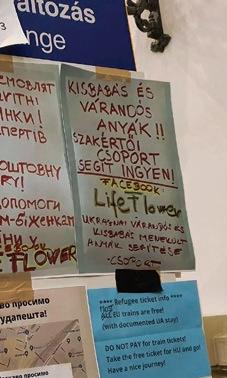 áltozás
nge
3
ЕМОВЛЯТ
НКИ!
ПЕРТІВ
ОШТОВНУ
РУ!
ОПОМОГИ
М-БІЖЕНКАМ
FLOWER
KISBABÁS ÉS
VÁRANDÓS
ANYÁK!!
SZAKÉRTŐI
CSOPORT
SEGÍT INGYEN!
FACEBOOK:
LifeFlower
UKRAJNAI VÁRANDÓS ÉS
KISBABÁS MENEKÜLT
ANYÁK SEGÍTÉSE
-CSOPORT
во просимо
удапешта!
**** Refugee ticket info ****
Most
ALL EU trains are free!
(with documented UA stay)
DO NOT PAY for train tickets!
Take the free ticket for HU and go!
Have a nice journey!